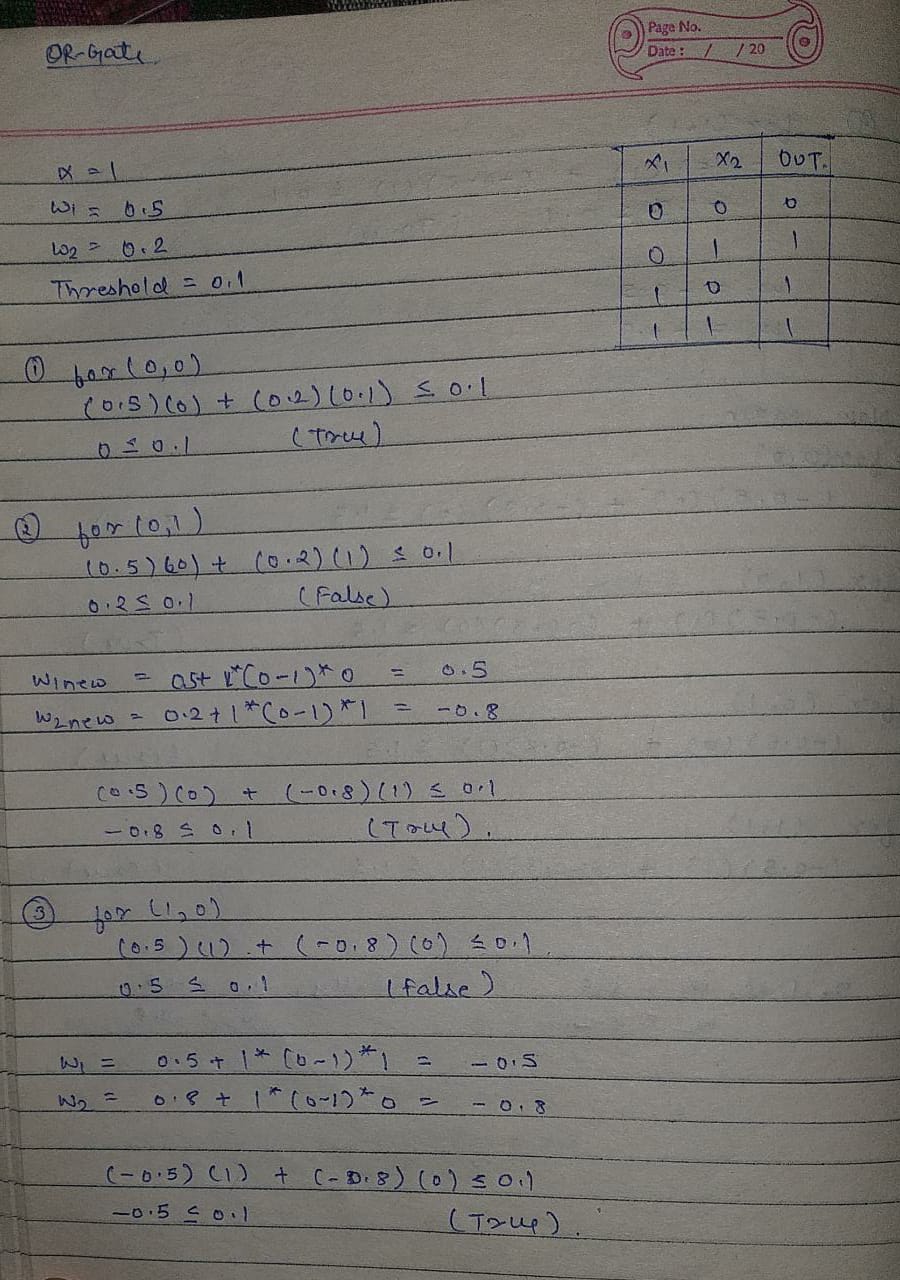 OR-Gate
Page No.
Date : / / 20
α = 1
W1 = 0.5
W2 = 0.2
Threshold = 0.1
X1 X2 OUT.
0 0 0
0 1 1
1 0 1
1 1 1
① for (0,0)
(0.5)(0) + (0.2)(0.1) ≤ 0.1
0 ≤ 0.1 (True)
② for (0,1)
(0.5)(0) + (0.2)(1) ≤ 0.1
0.2 ≤ 0.1 (False)
W1new = 0.5+ 1*(0-1)*0 = 0.5
W2new = 0.2+1*(0-1)*1 = -0.8
(0.5)(0) + (-0.8)(1) ≤ 0.1
-0.8 ≤ 0.1 (True).
③ for (1,0)
(0.5)(1) + (-0.8)(0) ≤ 0.1
0.5 ≤ 0.1 (False)
W1 = 0.5 + 1*(0-1)*1 = -0.5
W2 = 0.8 + 1*(0-1)*0 = -0.8
(-0.5)(1) + (-0.8)(0) ≤ 0.1
-0.5 ≤ 0.1 (True).